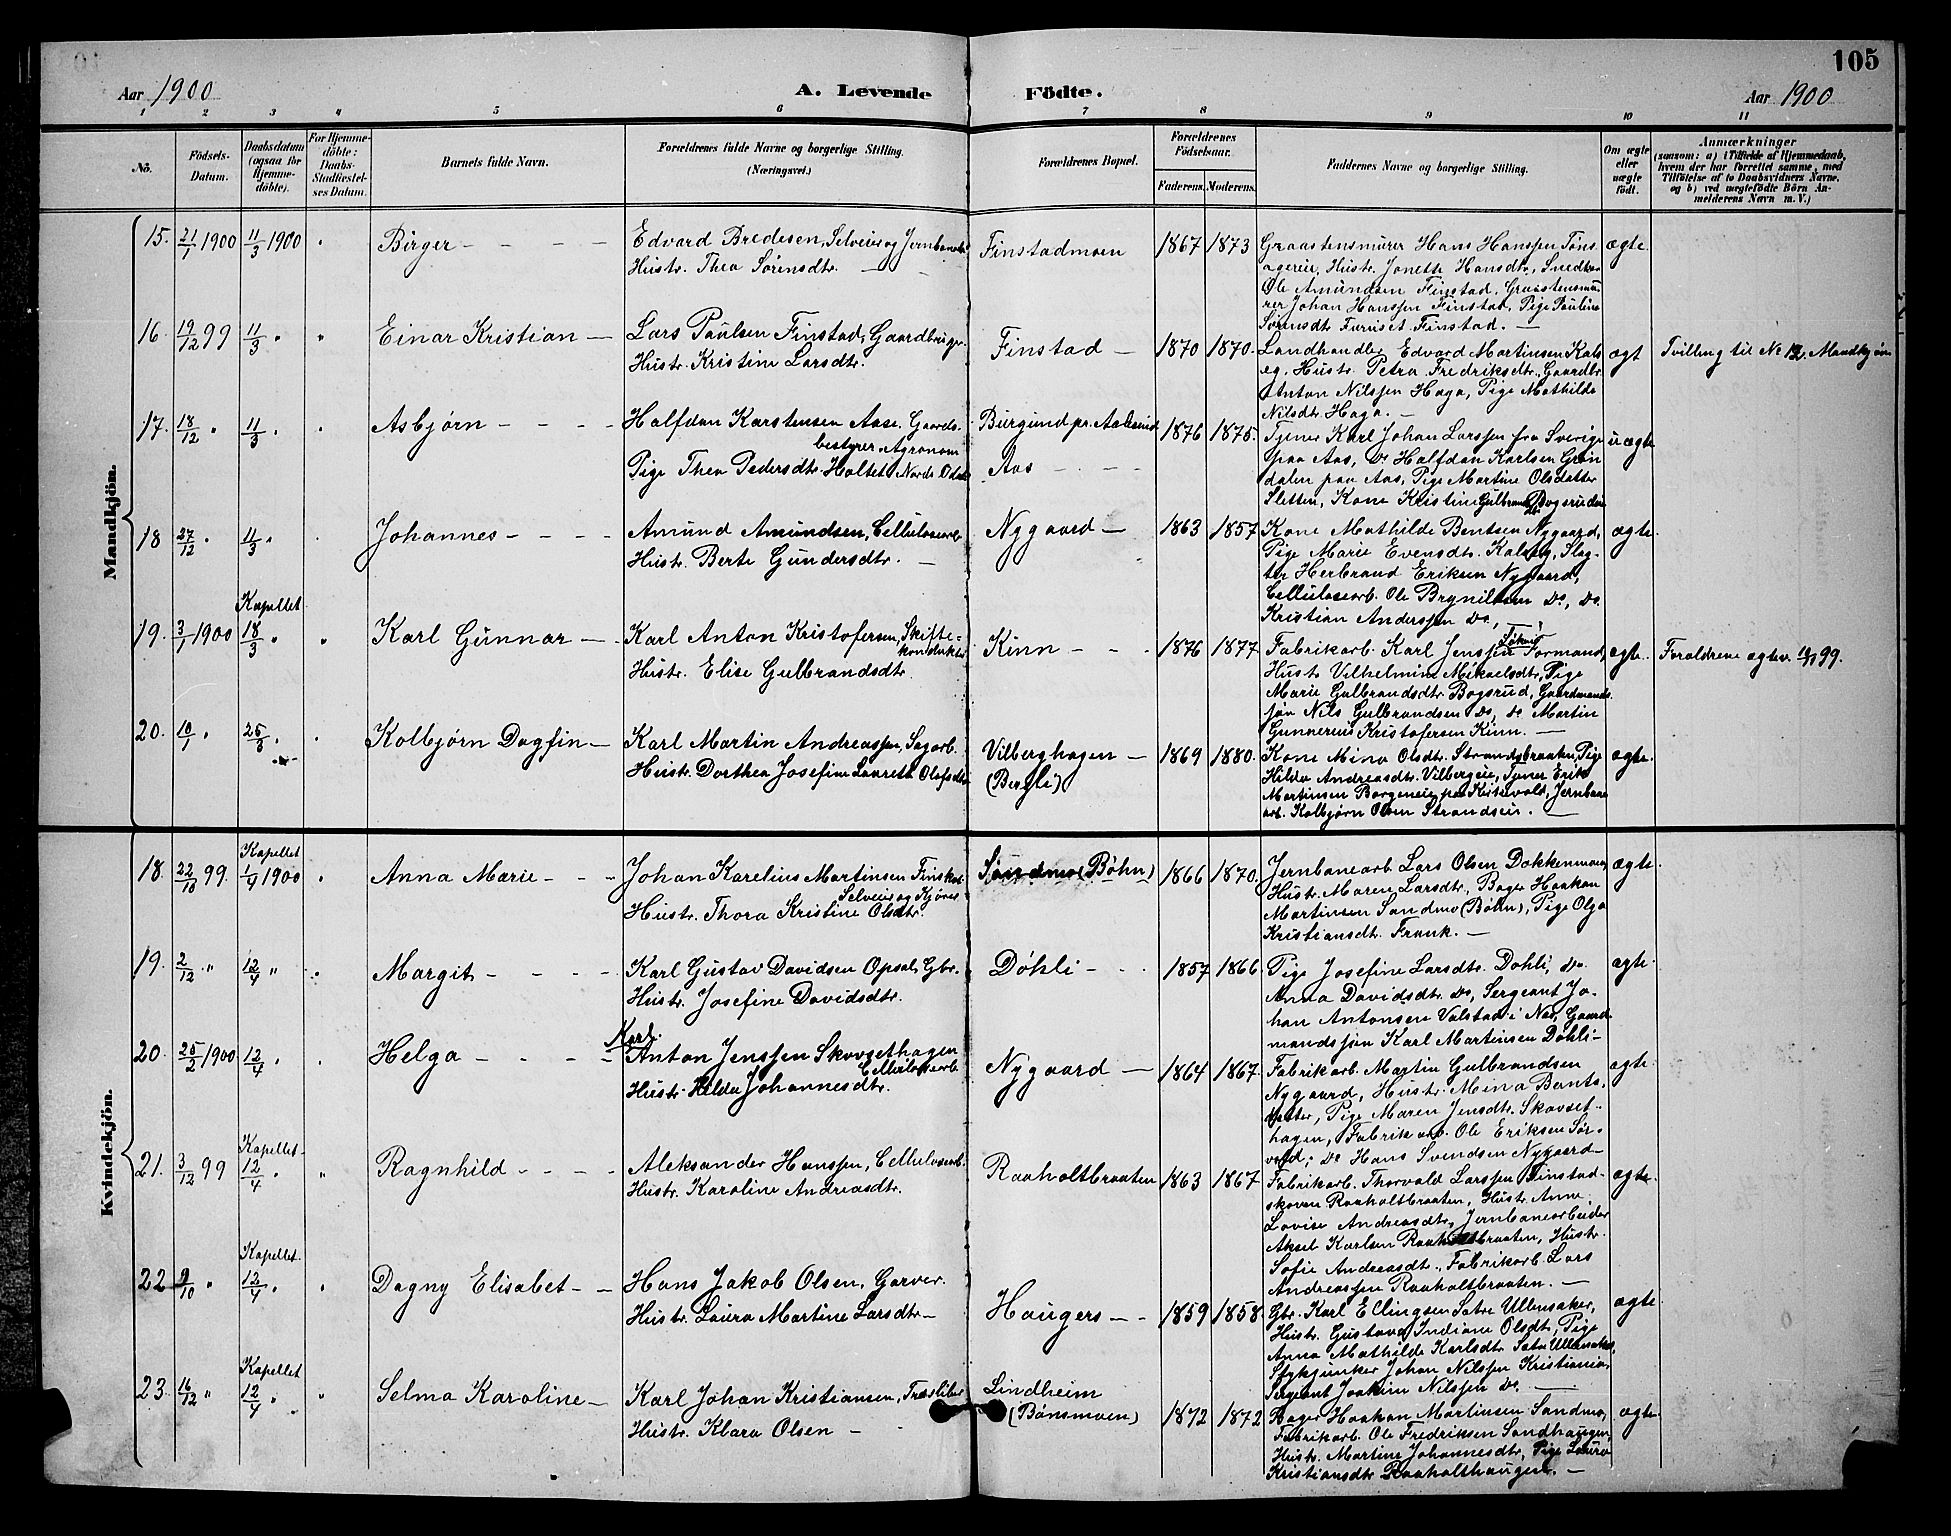 105
Aar 1900 A. Levende Fødte. Aar 1900
1 2 3 4 5 6 7 8 9 10 11
No. Födsels-Datum. Daabsdatum (ogsaa for Hjemme-döbte). For Hjemme-döbte: Daabs-Stadfæstel-ses Datum. Barnets fulde Navn. Forældrenes fulde Navne og borgerlige Stilling. (Næringsvei.) Forældrenes Bopæl. Forældrenes Födselsaar. Faderens. Moderens. Faddernes Navne og borgerlige Stilling. Om ægte eller uægte født. Anmærkninger (saasom: a) i Tilfælde af Hjemmedaab, hvem der har forrettet samme, med Tilföielse af to Daabsvidners Navne, og b) ved uægtefödte Börn Anmelderens Navn m. V.)
Mandkjön.
15. 21/1 1900 11/3 1900 Birger - - - -
Edvard Bredesen, Selveier og Jernbanearb.
Hustr. Thea Sörensdtr. —
Finstadmoen 1867 1873
Graastensmürer Hans Hanssen Töns
agereie, Hustr. Jonette Hansdtr, Snedker
Ole Amundsen Finstad, Graastensmü-
rer Johan Hanssen Finstad, Pige Pauline
Sörensdtr Furuset Finstad. —
ægte
16 19/12 99 11/3 " Einar Kristian —
Lars Paulsen Finstad, Gaardbrüger
Hustr. Kristine Larsdtr.
Finstad — 1870 1870.
Landhandler Edvard Martinsen Kals
eg, Hustr. Petra Fredriksdtr., Gaardbr.
Anton Nilssen Haga, Pige Mathilde
Nilsdtr. Haga. —
ægt
Tvilling til No 12, Mandkjön
17. 18/12 " 11/3 " Asbjørn - - - -
Halfdan Karstensen Aase, Gaards-
bestyrer, Agronom
Pige Thea Pedersdtr. Holtet Nordr. Odalen
Burgund pr. Aalesund
Aas — 1876 1875.
Tjener Karl Johan Larssen fra Sverige
paa Aas, Do Halfdan Karlsen Grön
dalen paa Aas, Pige Martine Olsdatter
Sletten, Kone Kristine Gulbrandsd. Bogsruden
üægte
18 27/12 " 11/3 " Johannes - - - -
Amund Amundsen, Cellulosearb.
Hustr. Berte Gundersdtr. —
Nygaard — 1863 1857
Kone Mathilde Bentsen Nygaard,
Pige Marie Evensdtr. Kalseg, Slag-
ter Herbrand Eriksen Nygaard,
Cellulosearb. Ole Brynildsen Do, Do.
Kristian Anderssen Do., —
ægte.
19. 3/1 1900 Kapellet 18/3 " Karl Günnar —
Karl Anton Kristofersen, Skifte-
konduktör
Hustr. Elise Gulbrandsdtr.
Kinn - - 1876 1877
Fabrikarb. Karl Jenssen Formand,
Hustr Vilhelmine Mikaelsdtr, Pige
Marie Gulbrandsdtr. Bogsrud, Gaardmands
sön Nils Gulbrandsen Do, Do Martin
Gunnerius Kristofersen Kinn. —
ægte.
Forældrene ægtev. 99.
20. 10/1 " 25/3 " Kolbjørn Dagfin —
Karl Martin Andreassen, Sagarb.
Hustr. Dorthea Josefine Lauretta Olafsdtr
Vilberghagen —
(Bergli) 1869 1880.
Kone Mina Olsdtr. Strandsbraaten, Pige
Hilda Andreasdtr. Vilbergeie, Tjener Erik
Martinsen Borgeneie paa Risevold, Jernbane
arb. Kolbjørn Olsen Strandseie. —
ægte.
Kvindekjön.
18. 22/10 99. Kapellet 1/4 1900 Anna Marie - - -
Johan Karelius Martinsen
Selveier og Kjörer
Hustr. Thora Kristine Olsdtr.
Sandmo (Böhn) 1866 1870.
Jernbanearb Lars Olsen Dokkenmoen,
Hustr. Maren Larsdtr., Bager Haakon
Martinsen Sandmo (Böhn), Pige Olga
Kristiansdtr. Frank. —
ægte.
19. 2/12 " 12/4 " Margit - - - -
Karl Gustav Davidsen Opsal, Gbr.
Hustr. Josefine Davidsdtr.
Döhli - - 1857 1866
Pige Josefine Larsdtr. Döhli, Do
Anna Davidsdtr. Do, Sergeant Jo-
han Antonsen Valstad i Nes, Gaard
mandssön Karl Martinsen Döhli —
ægte.
20. 25/2 1900 12/4 " Helga - - - -
Karl
Anton Jenssen Skovsethagen
Cellulosearb
Hustr. Hilda Johannesdtr.
Nygaard — 1864 1867.
Fabrikarb. Martin Gulbrandsen
Nygaard, Hustr. Mina Bernts-
datter, Pige Maren Jensdtr. Skovset-
hagen, Fabrikarb. Ole Eriksen Sör-
vold, Do Hans Svendsen Nygaard —
ægte.
21. 3/12 99 Kapellet 12/4 " Ragnhild - - - -
Aleksander Hanssen, Cellulosearb.
Hustr. Karoline Andreasdtr.
Raaholtbraaten 1863 1867
Fabrikarb. Thorvald Larssen Finstad-
skoven Raaholtbraaten, Hustr. Anne
Lovise Andreasdtr, Jernbanearbeider
Aksel Karlsen Raaholtbraaten, Hustr.
Sofie Andreasdtr., Fabrikarb. Lars
Andreassen Raaholtbraaten. —
ægte.
22 9/10 " Kapellet. 12/4 " Dagny Elisabet - -
Hans Jakob Olsen, Garver.
Hustr. Laura Martine Larsdtr —
Haugers - - 1859 1858.
Gbr. Karl Ellingsen Sætre Ullensaker,
Hustr. Gustava Indiane Olsdtr, Pige
Anna Mathilde Karlsdtr Sætre Ullensaker,
Stykjunker Johan Nilssen Kristiania,
Sergeant Joakim Nilssen Do. —
ægte
23. 16/12 " Kapellet 12/4 " Selma Karoline —
Karl Johan Kristiansen, Træsliber
Hustr. Klara Olsen —
Lindheim
(Bönsmoen) 1872 1872
Bager Haakon Martinsen Sandmo,
Fabrikarb. Ole Fredriksen Sandhaugen,
Hustr. Martine Johannesdtr, Pige Laura
Kristiansdtr Raaholthaugen. —
ægte.